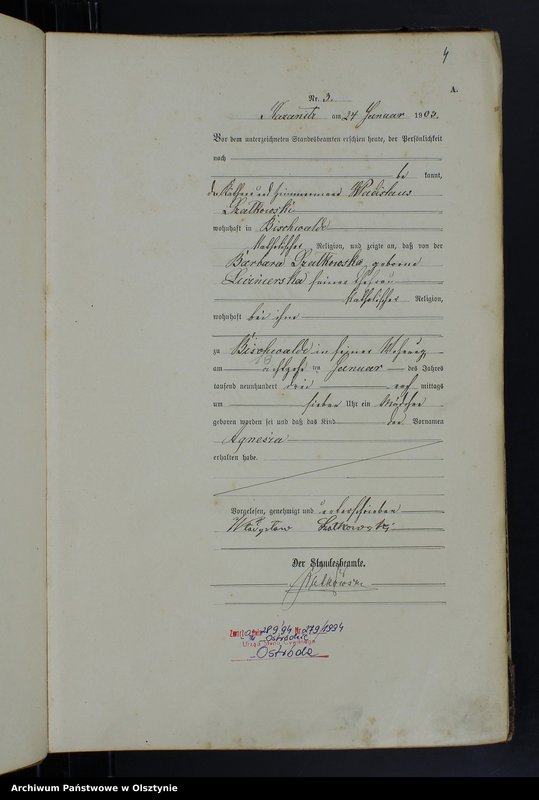 4
A.
Nr. 3.
am 24 Januar 1903.
Vor dem unterzeichneten Standesbeamten erschien heute, der Persönlichkeit
nach
be kannt,
der und Zimmermann Wladislaus
Szalkowski
wohnhaft in Bischwalde
katholischer Religion, und zeigte an, daß von der
Barbara Szalkowska geborne
seiner Ehefrau
katholischer Religion,
wohnhaft bei ihm
zu Bischwalde in seiner Wohnung
am achtzehn ten Januar des Jahres
tausend neunhundert drei mittags
um sieben Uhr ein Mädchen
geboren worden sei und daß das Kind den Vornamen
Agnesia
erhalten habe.
Vorgelesen, genehmigt und unterschrieben
Władysław Szalkowski
Der Standesbeamte.
289/94 Nr 279/1994
w Ostródzie
Urząd Stanu Cywilnego
Ostróda
Archiwum Państwowe w Olsztynie